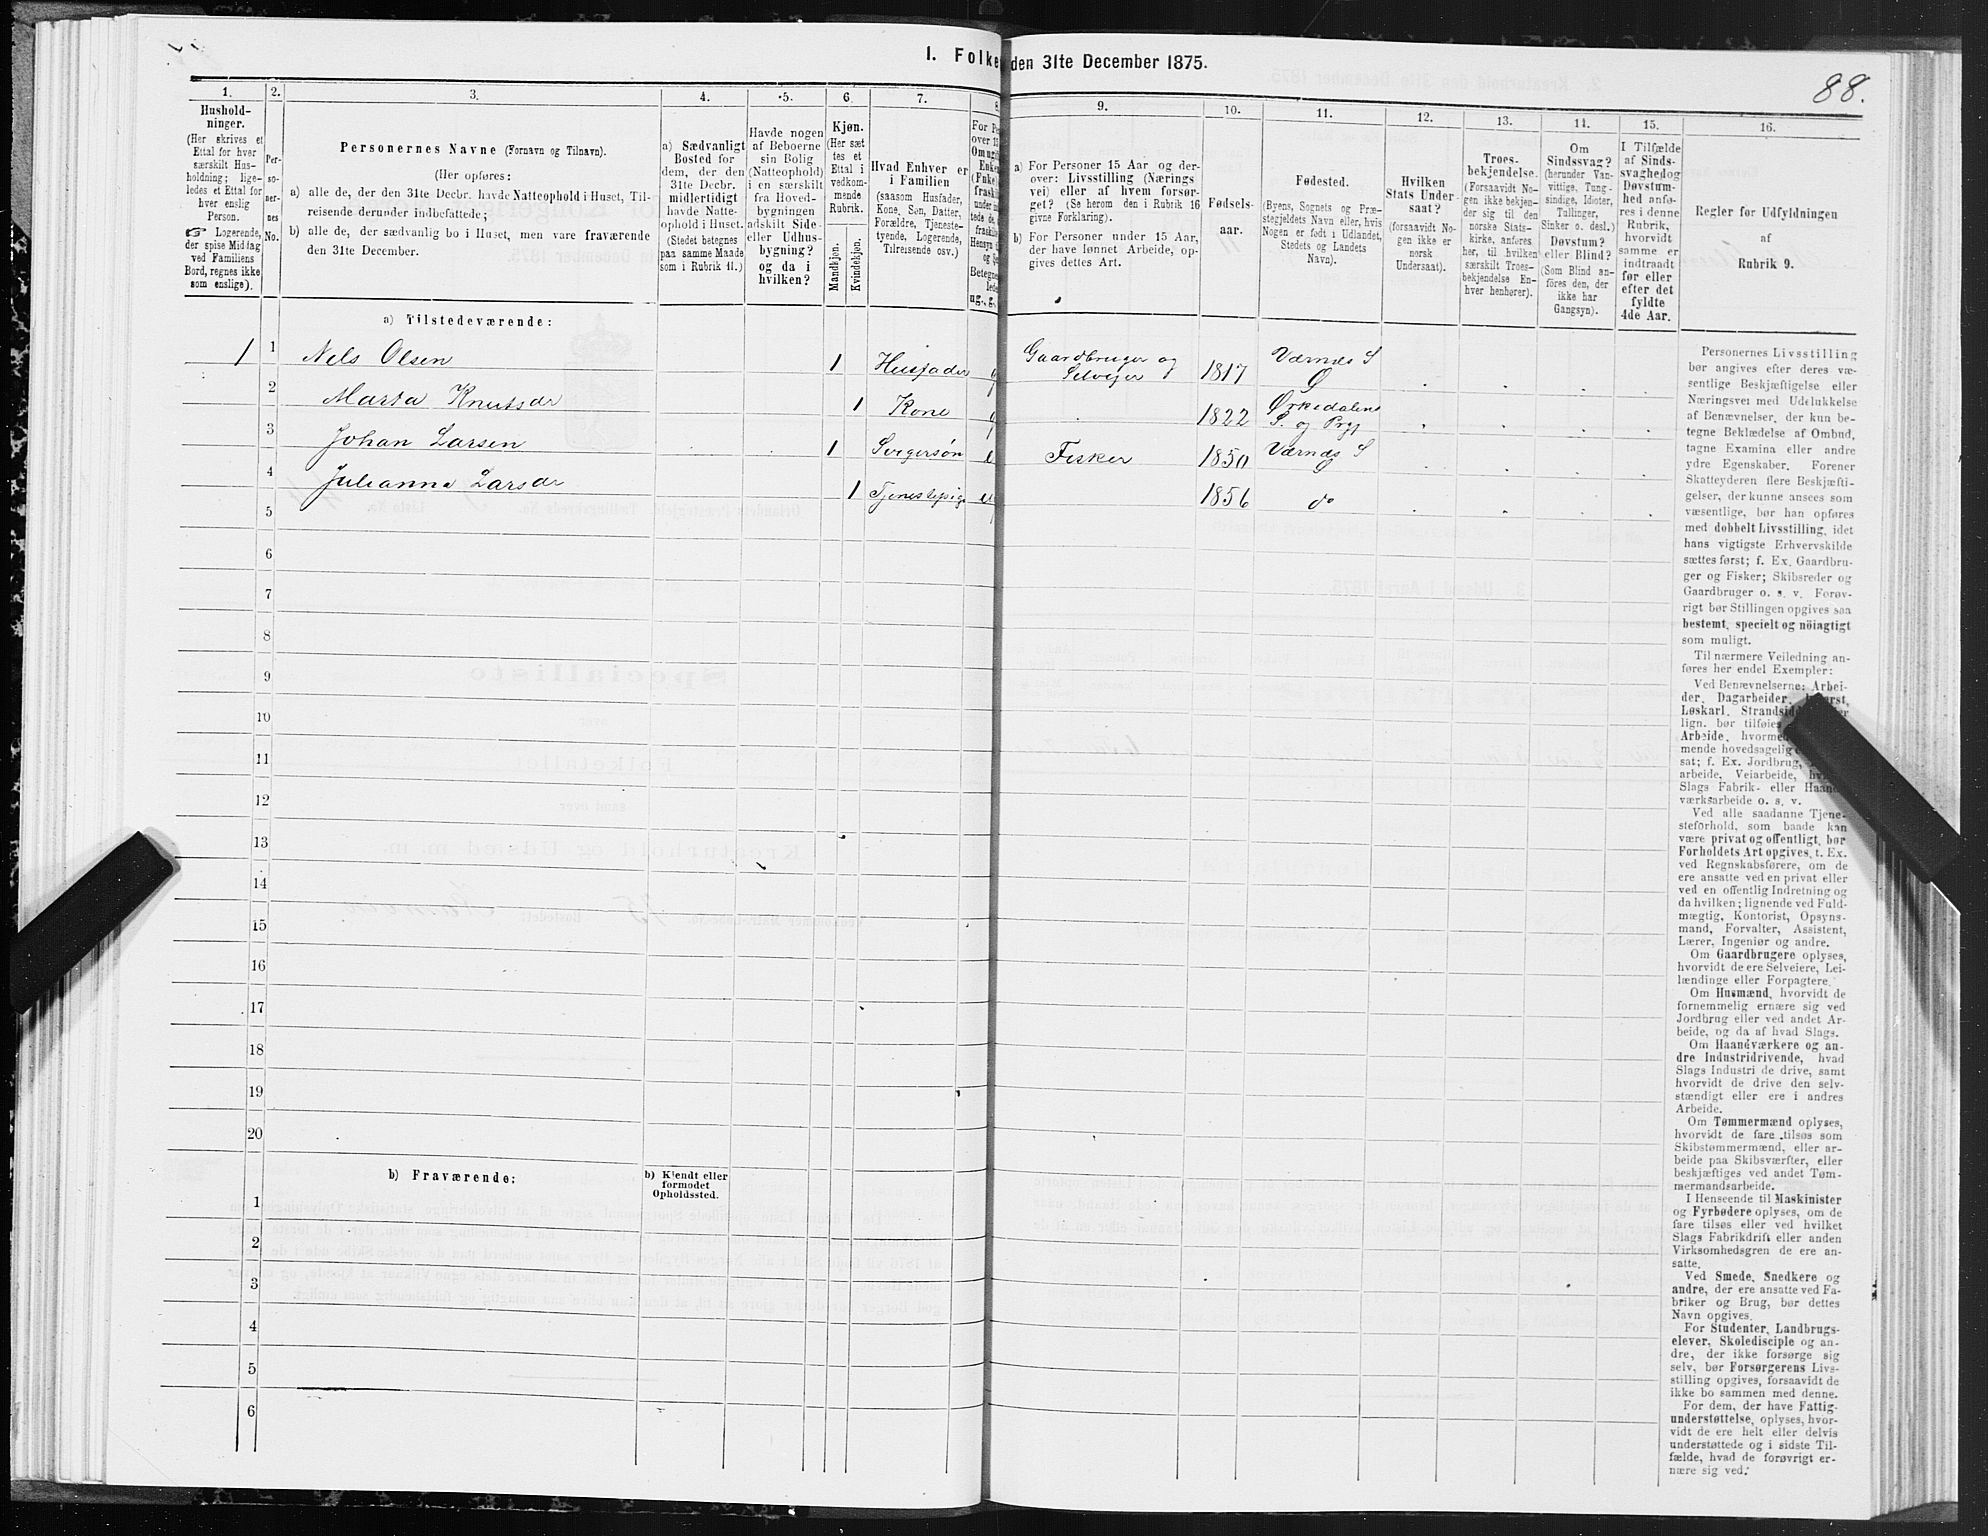 I. Folke
den 31te December 1875.
88.
1.
2.
3.
4.
5.
6.
7.
8.
9.
10.
11.
12.
13.
14.
15.
16.
Hushold-
ninger.
(Her skrives et
Ettal for hver
særskilt Hus-
holdning; lige-
ledes et Ettal for
hver enslig
Person.
☞ Logerende,
der spise Middag
ved Familiens
Bord, regnes ikke
som enslige).
Per-
so-
ner-
nes
No.
Personernes Navne (Fornavn og Tilnavn).
(Her opføres:
a) alle de, der den 31te Decbr. havde Natteophold i Huset, Til-
reisende derunder indbefattede;
b) alle de, der sædvanlig bo i Huset, men vare fraværende
den 31te December.
a) Sædvanligt
Bosted for
dem, der den
31te Decbr.
midlertidigt
havde Natte-
ophold i Huset.
(Stedet betegnes
paa samme Maade
som i Rubrik 11.)
Havde nogen
af Beboerne
sin Bolig
(Natteophold)
i en særskilt
fra Hoved-
bygningen
adskilt Side-
eller Udhus-
bygning?
og da i
hvilken?
Kjøn.
(Her sæt
tes et
Ettal i
vedkom-
mende
Rubrik.
Mandkjøn.
Kvindekjøn.
Hvad Enhver er
i Familien
(saasom Husfader,
Kone, Søn, Datter,
Forældre, Tjeneste-
tyende, Logerende,
Tilreisende osv.)
For Pe
over 1
Om ugif
Enke
(Enke
fraski
under in
tede de
fraskil
Hensyn t
og
Betegne
lede
ug., g.,
a) For Personer 15 Aar og der-
over: Livsstilling (Nærings
vei) eller af hvem forsør-
get? (Se herom den i Rubrik 16
givne Forklaring).
b) For Personer under 15 Aar,
der have lønnet Arbeide, op-
gives dettes Art.
Fødsels-
aar.
Fødested.
(Byens, Sognets og Præ-
stegjeldets Navn eller, hvis
Nogen er født i Udlandet,
Stedets og Landets
Navn).
Hvilken
Stats Under-
saat?
(forsaavidt No-
gen ikke er
norsk
Undersaat).
Troes-
bekjendelse.
(Forsaavidt No-
gen ikke bekjen-
der sig til den
norske Stats-
kirke, anføres
her, til hvilken
særskilt Troes-
bekjendelse En-
hver henhører).
Om
Sindssvag?
(herunder Van-
vittige, Tung-
sindige, Idioter,
Tullinger,
Sinker o. desl.)
Døvstum?
eller Blind?
(Som Blind an-
føres den, der
ikke har
Gangsyn).
I Tilfælde
af Sinds-
svaghed og
Døvstum-
hed anfø-
res i denne
Rubrik,
hvorvidt
samme er
indtraadt
før eller
efter det
fyldte
4de Aar.
Regler for Udfyldningen
af
Rubrik 9.
a) Tilstedeværende:
1 1 Nels Olsen 1 Husfader g Gaardbruger og Selveier 1817 Værnes S Ø
2 Marta Knutsdr 1 Kone g 1822 Ørkedalens S. og Prgj
3 Johan Larsen 1 Svigersøn Fisker 1850 Værnes S Ø
4 Julianna Larsdr 1 Tjenestepige 1856 do
5
6
7
8
9
10
11
12
13
14
15
16
17
18
19
20
b) Fraværende:
b) Kjendt eller
formodet
Opholdssted.
1
2
3
4
5
6
Personernes Livsstilling
bør angives efter deres væ-
sentlige Beskjæftigelse eller
Næringsvei med Udelukkelse
af Benævnelser, der kun be-
tegne Beklædelse af Ombud,
tagne Examina eller andre
ydre Egenskaber. Forener
Skatteyderen flere Beskjæfti-
gelser, der kunne ansees som
væsentlige, bør han opføres
med dobbelt Livsstilling, idet
hans vigtigste Erhvervskilde
sættes først; f. Ex. Gaardbru-
ger og Fisker; Skibsreder og
Gaardbruger o. s. v. Forøv-
rigt bør Stillingen opgives saa
bestemt, specielt og nöiagtigt
som muligt.
Til nærmere Veiledning an-
føres her endel Exempler:
Ved Benævnelserne: Arbei-
der, Dagarbeider,
Løskarl, Strandsid
lign. bør tilføies
Arbeide, hvormed
mende hovedsagelig
sat; f. Ex. Jordbrug,
arbeide, Veiarbeide,
Slags Fabrik- eller Haand-
værksarbeide o. s. v.
Ved alle saadanne Tjene-
steforhold, som baade kan
være privat og offentligt, bør
Forholdets Art opgives, t. Ex.
ved Regnskabsførere, om de
ere ansatte ved en privat eller
ved en offentlig Indretning og
da hvilken; lignende ved Fuld-
mægtig, Kontorist, Opsyns-
mand, Forvalter, Assistent,
Lærer, Ingeniør og andre.
Om Gaardbrugere oplyses,
hvorvidt de ere Selveiere, Lei-
lændinge eller Forpagtere.
Om Husmænd, hvorvidt de
fornemmelig ernære sig ved
Jordbrug eller ved andet Ar-
beide, og da af hvad Slags.
Om Haandværkere og an-
dre Industridrivende, hvad
Slags Industri de drive, samt
hvorvidt de drive den selv-
stændigt eller ere i andres
Arbeide.
Om Tømmermænd oplyses,
hvorvidt de fare tilsøs som
Skibstømmermænd, eller ar-
beide paa Skibsværfter, eller
beskjæftiges ved andet Tøm-
mermandsarbeide.
I Henseende til Maskinister
og Fyrbødere oplyses, om de
fare tilsøs eller ved hvilket
Slags Fabrikdrift eller anden
Virksomhedsgren de ere an-
satte.
Ved Smede, Snedkere og
andre, der ere ansatte ved Fa-
briker og Brug, bør dettes
Navn opgives.
For Studenter, Landbrugs-
elever, Skoledisciple og an-
dre, der ikke forsørge sig
selv, bør Forsørgerens Livs-
stilling opgives, forsaavidt de
ikke bo sammen med denne.
For dem, der have Fattig-
understøttelse, oplyses, hvor-
vidt de ere helt eller delvis
understøttede og i sidste Til-
fælde, hvad de forøvrigt er-
nære sig ved.